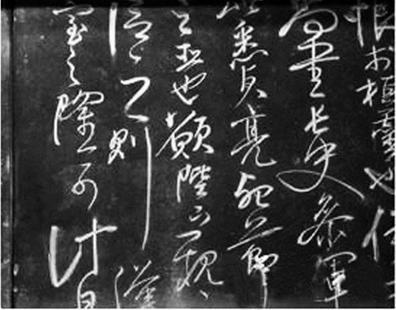 恨於桓靈也侍
尚書長史參軍
此悉貞亮死節
之臣也願陛下親之
信之則漢
室之隆可計日